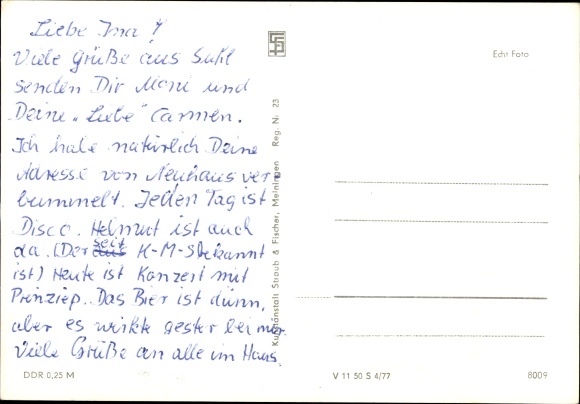 Liebe Ina!
Viele Grüße aus Suhl
senden Dir Moni und
Deine „Liebe" Carmen.
Ich habe natürlich Deine
Adresse von Neuhaus ver
bummelt. Jeden Tag ist
Disco. Helmut ist auch
da. (Der seit K-M-S bekannt
ist) Heute ist Konzert mit
Prinziep. Das Bier ist dünn,
aber es wirkte gester bei mir.
Viele Grüße an alle im Haus.
DDR 0,25 M
Kunstanstalt Straub & Fischer, Meiningen Reg. Nr. 23
Echt Foto
V 11 50 S 4/77
8009